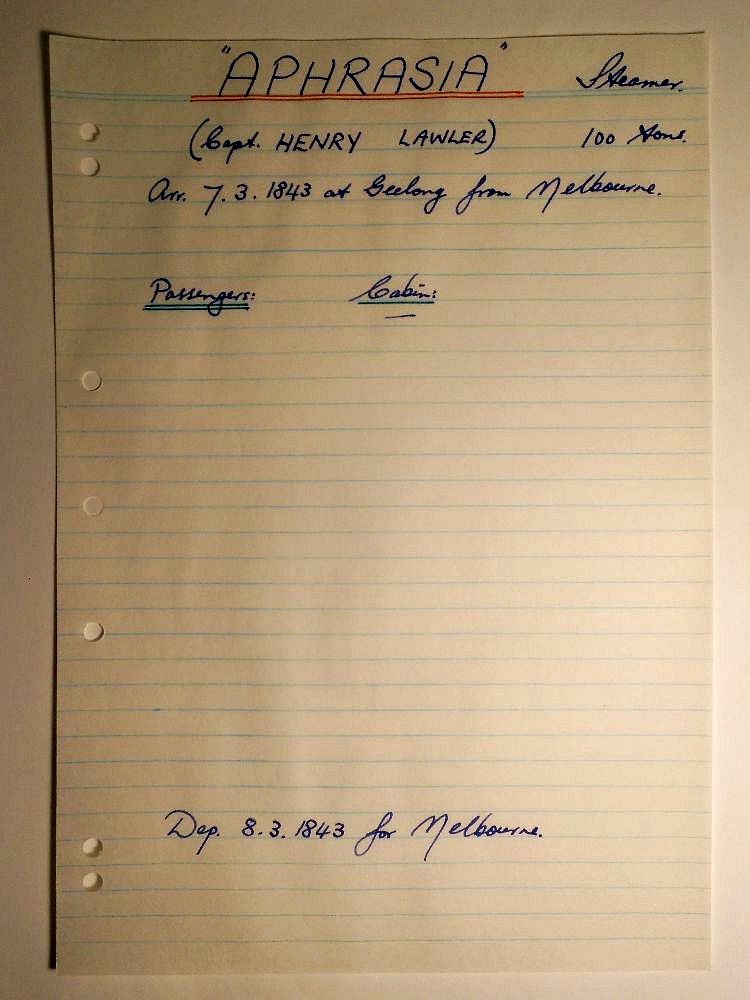 "APHRASIA" Steamer.
(Capt. HENRY LAWLER) 100 Tons.
Arr. 7.3.1843 at Geelong from Melbourne.
Passengers: Cabin:
—
Dep. 8.3.1843 for Melbourne.